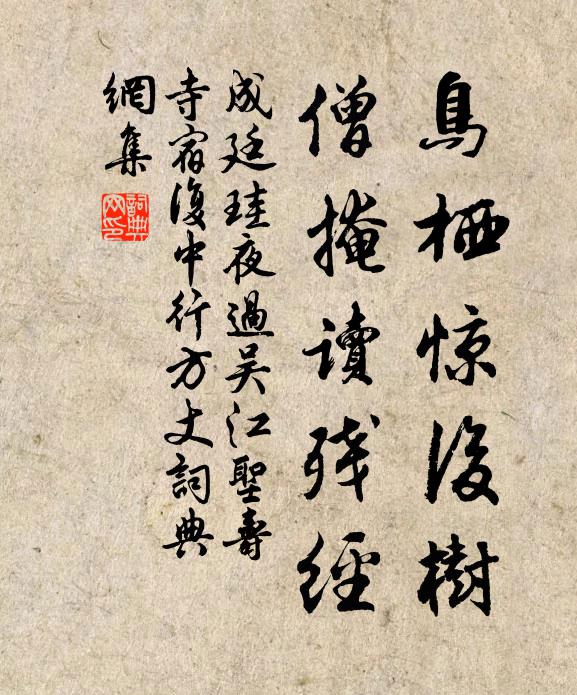 鳥栖惊後樹
僧掩讀殘經
成廷珪夜過吴江聖壽
寺宿復中行方丈詞典
網集
詞典
网印